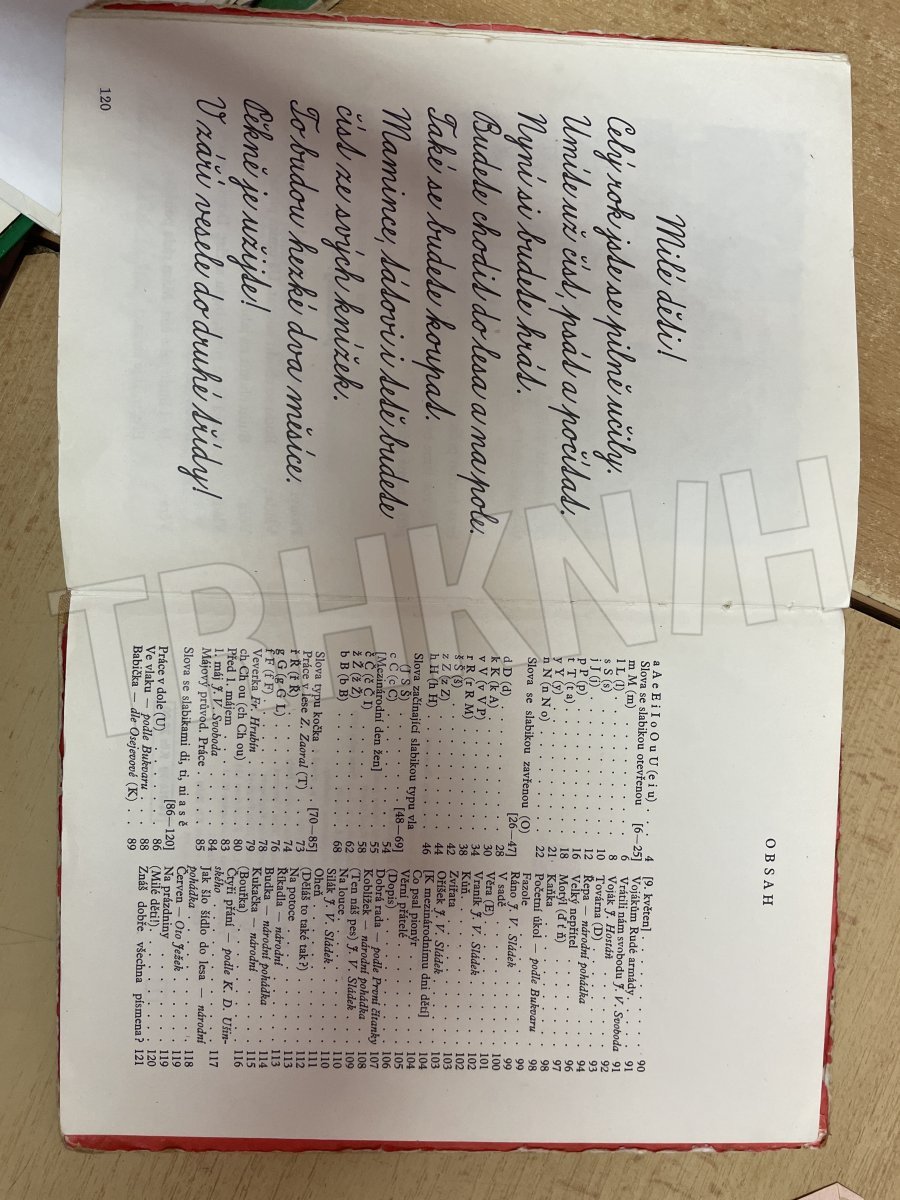 Milé děti!
Celý rok jste se pilně učily.
Umíte už číst, psát a počítat.
Nyní si budete hrát.
Budete chodit do lesa a na pole.
Také se budete koupat.
Mamince, tátovi i tetě budete
číst ze svých knížek.
To budou hezké dva měsíce.
Pěkně je užijte!
V září vesele do druhé třídy!
120
OBSAH
a A e E i I o O u U (e i u) . . . 4
Slova se slabikou otevřenou [6—25]
m M (m) . . . . . 6
l L (l) . . . . . 8
s S (s) . . . . . 10
j J (j) . . . . . 11
p P (p) . . . . . 12
t T (t a) . . . . . 16
y v (y) . . . . . 18
n N (n N o) . . . . . 21
22
Slova se slabikou zavřenou (O)
[26—47]
d D (d) . . . . . 28
k K (k A) . . . . . 30
v V (v V P) . . . . . 34
r R (r R M) . . . . . 38
š Š (š) . . . . . 42
z Z (z Z) . . . . . 44
h H (h H) . . . . . 46
Slova začínající slabikou typu vla
(U S Š) [48—69]
c C (c C) . . . . . 54
[Mezinárodní den žen] . . . 55
č Č (č Č I) . . . . . 58
ž Ž (ž Ž) . . . . . 62
b B (b B) . . . . . 68
Slova typu kočka [70—85]
Práce v lese Z. Zaoral (T) . . 73
ř Ř (ř Ř) . . . . . 74
g G (g G L) . . . . . 76
f F (f F) . . . . . 78
Veverka Fr. Hrubín . . . . . 79
ch Ch ou (ch Ch ou) . . . . . 80
Před 1. májem . . . . . 83
1. máj J. V. Svoboda . . . . . 84
Májový průvod. Práce . . . . . 85
Slova se slabikami di, ti, ni a s ě
[86—120]
Práce v dole (U) . . . . . 86
Ve vlaku — podle Bukvaru . . 88
Babička — dle Osejevové (K) . 89
[9. květen] . . . . . 90
Vojákům Rudé armády . . . . . 91
Vrátili nám svobodu J. V. Svoboda 91
Voják J. Hostáň . . . . . 92
Továrna (D) . . . . . 93
Řepa — národní pohádka . . . 94
Velký nepřítel . . . . . 96
Motýl (ď ť ň) . . . . . 97
Kaňka . . . . . 98
Početní úkol — podle Bukvaru . 98
Fazole . . . . . 99
Ráno J. V. Sládek . . . . . 99
V sadě . . . . . 100
Věra (E) . . . . . 101
Vraník J. V. Sládek . . . . . 102
Kůň . . . . . 102
Zvířata . . . . . 103
Oříšek J. V. Sládek . . . . . 103
[K mezinárodnímu dni dětí] . . 104
Co psal pionýr . . . . . 104
Věrní přátelé . . . . . 105
(Dopis) . . . . . 106
Dobrá rada — podle První čítanky 107
Koblížek — národní pohádka . . 108
(Ten náš pes) J. V. Sládek . . 109
Na louce . . . . . 110
Silák J. V. Sládek . . . . . 110
Oheň . . . . . 111
(Děláš to také tak?) . . . . . 112
Na potoce . . . . . 113
Říkadla — národní . . . . . 113
Budka — národní pohádka . . 114
Kukačka — národní . . . . . 115
(Bouřka) . . . . . 116
Čtyři přání — podle K. D. Ušin-
ského . . . . . 117
Jak šlo šídlo do lesa — národní
pohádka . . . . . 118
Červen — Oto Ježek . . . . . 119
Na prázdniny . . . . . 119
(Milé děti!) . . . . . 120
Znáš dobře všechna písmena? 121
TRHKNIH